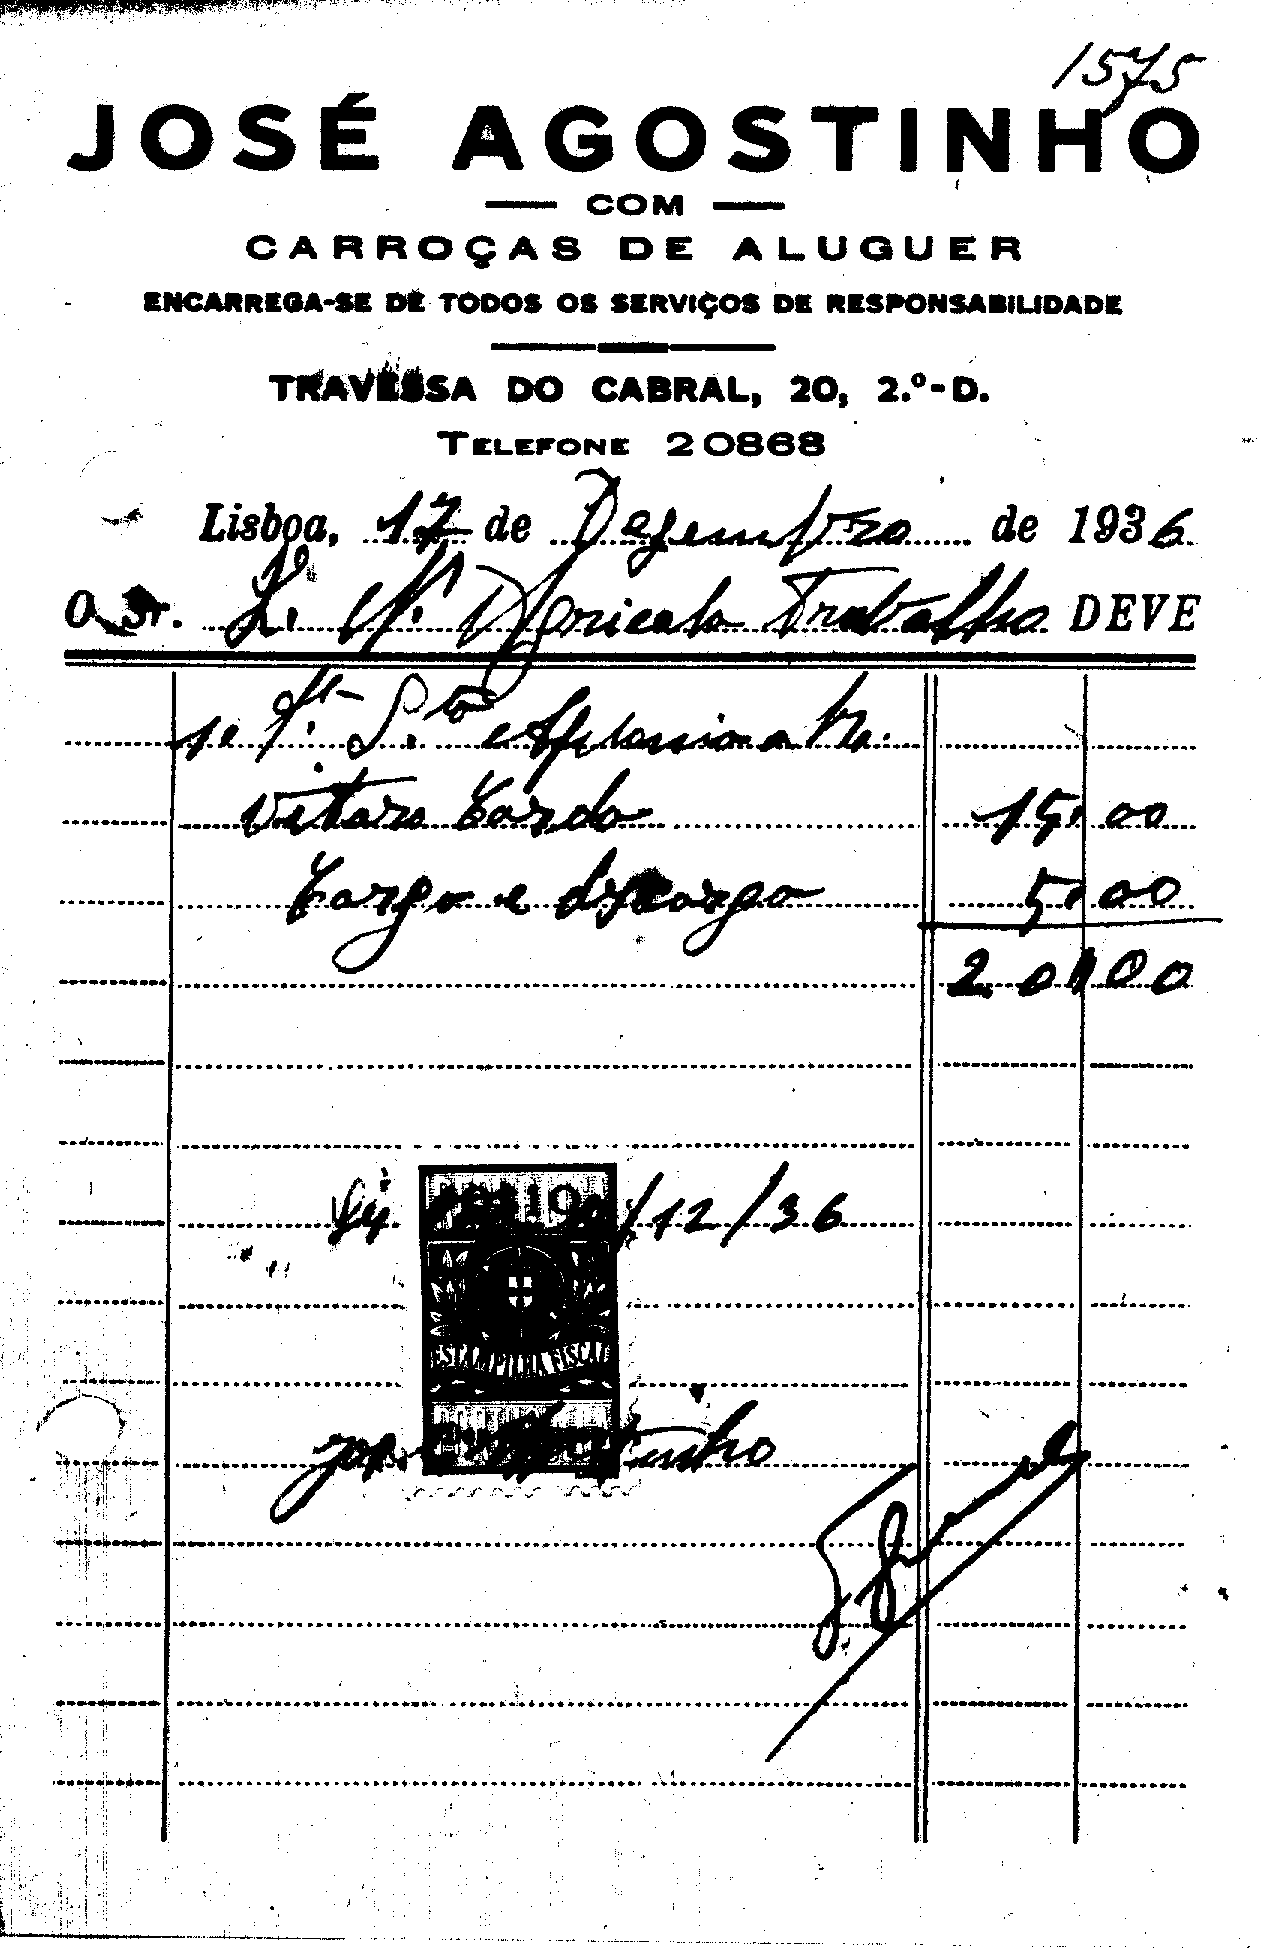 1575
JOSÉ AGOSTINHO
COM
CARROÇAS DE ALUGUER
ENCARREGA-SE DE TODOS OS SERVIÇOS DE RESPONSABILIDADE
TRAVESSA DO CABRAL, 20, 2.º-D.
TELEFONE 20868
Lisboa, 17 de Dezembro de 1936
O Sr. Trabalho DEVE
15,00
Cargo e discargo 5,00
20,00
/12/36
ESTAMPILHA FISCAL
José Agostinho